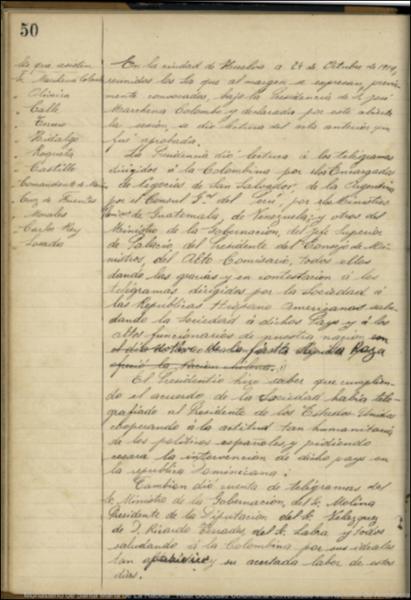 50
Sres. que asisten
Sr. Marchena Colombo
" Oliveira
" Calle
" Terrero
" Hidalgo
" Roqueta
" Castillo
Comandante de Marina
Cruz de Fuentes
Morales
Carlos Rey
Losada
En la ciudad de Huelva a 24 de Octubre de
reunidos los Sres que al margen se expresan, previa-
mente convocados, bajo la Presidencia de D. José
Marchena Colombo y declarada por este abierta
la sesión, se dio lectura del acta anterior que
fué aprobada.
La Presidencia dió lectura á los telegramas
dirigidos á la Colombina por los Encargados
de Negocios de San Salvador, de la Argentina
por el Consul Gral del Perú, por los Ministros
de Guatemala, de Venezuela; y otros del
Ministro de la Gobernación, del Jefe Superior
de Palacio, del Presidente del Consejo de Mi-
nistros, del Alto Comisario, todos ellos
dando las gracias y en contestación á los
telegramas dirigidos por la Sociedad á
las Republicas Hispano Americanas salu-
dando la Sociedad á dichos Pays y á los
altos funcionarios de nuestra nación
Raza
El Presidente hizo saber que cumplien-
do el acuerdo de la Sociedad habia tele-
grafiado al Presidente de los Estados Unidos
cooperando á la actitud tan humanitaria
de los politicos españoles y pidiendo
cesara la intervencion de dicho pays en
la republica Dominicana.
Tambien dió cuenta de telegramas del
Sr. Ministro de la Gobernacion, del Sr. Molina
Presidente de la Diputación del Sr. Velazquez
de D. Ricardo Terrades, del Sr. Labra y todos
saludando á la Colombina por sus ideales
tan y su acertada labor de estos
dias.